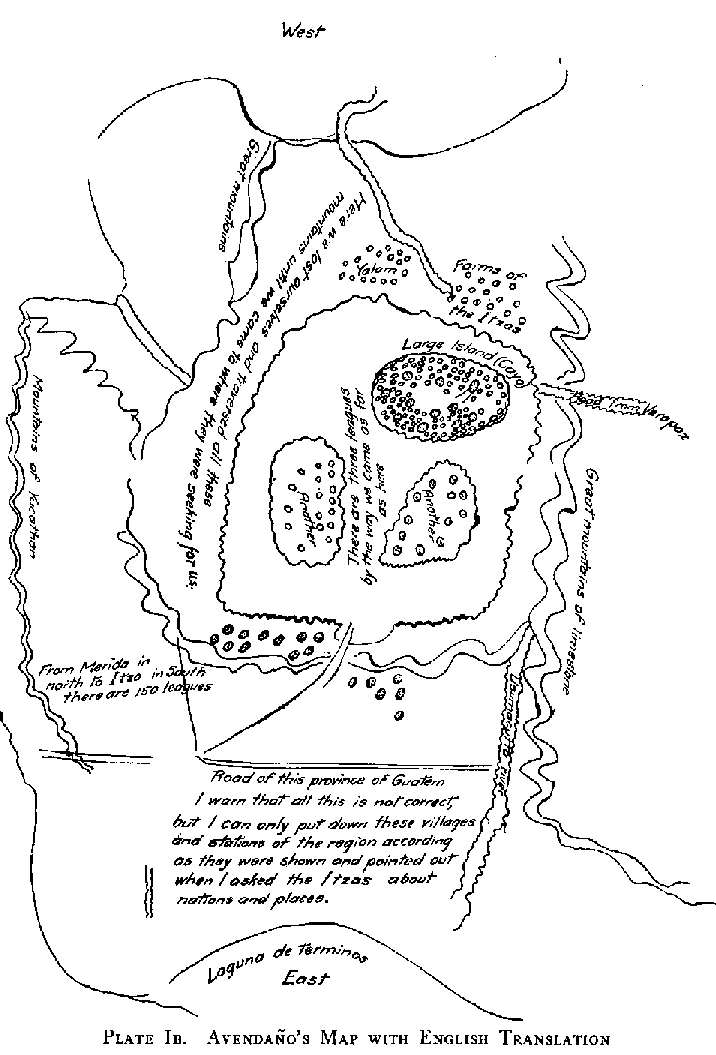 West
Great mountains
Here we lost ourselves and traversed all these
mountains until we came to where they were seeking for us.
Yalam
Farms of
the Itzas
Large Island (Cayo)
Road from Verapaz
Mountains of Yucathan
There are three leagues
by the way we came as far
as
Another
Another
Great mountains of limestone
From Merida in
north to Itza in South
there are 150 leagues
river
Road of this province of Guatem
I warn that all this is not correct,
but I can only put down these villages
and stations of the region according
as they were shown and pointed out
when I asked the Itzas about
nations and places.
Laguna de Terminos
East
PLATE IB. AVENDAÑO'S MAP WITH ENGLISH TRANSLATION